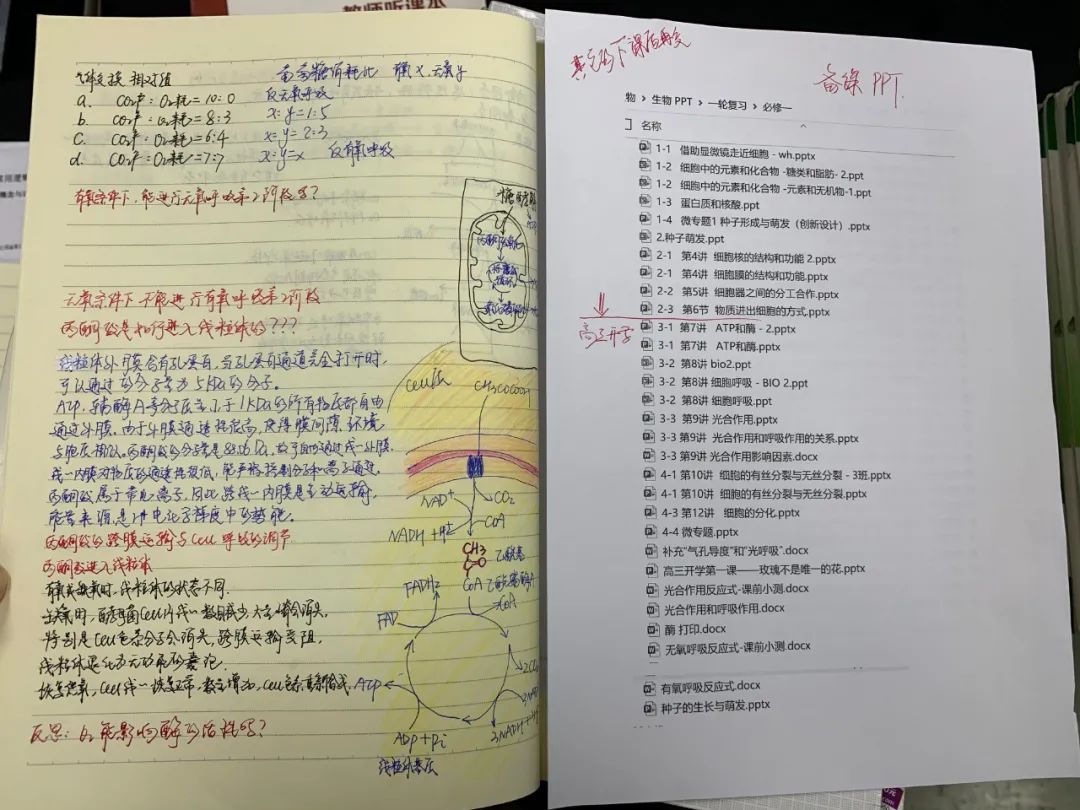 教师听课本
气体交换 相对值 葡萄糖消耗比 有氧x.无氧y
a. CO₂产:O₂耗=10:0 仅无氧呼吸
b. CO₂产:O₂耗=8:3 x:y=1:5
c. CO₂产:O₂耗=6:4 x:y=2:3
d. CO₂产:O₂耗=7:7 x:y=x 仅有氧呼吸
有氧条件下,能进行无氧呼吸第2阶段吗?
无氧条件下不能进行有氧呼吸第2阶段
丙酮酸是如何进入线粒体的???
线粒体外膜含有孔蛋白,当孔蛋白通道完全打开时,
可以通过的分子量为5KDa的分子。
ATP、辅酶A等分子量小于1KDa的所有物质都自由
通过外膜,由于外膜通透性很高,使得膜间隙环境
与胞质相似。丙酮酸的分子量是88
线-内膜对物质的通透性较低,能严格控制分子和离子通过,
丙酮酸属于带电离子,因此跨线-内膜是主动运输,
能量来源,是H⁺电化学梯度中的势能。
丙酮酸的跨膜运输与Cell呼吸的调节
丙酮酸进入线粒体
有氧或缺氧时,线粒体的状态不同.
缺氧时,酵母菌Cell内线-数目减少,大多嵴会消失,
特别是Cell色素分子会消失,跨膜运输受阻,
线粒体退化为无功能的囊泡.
恢复供氧,Cell线-恢复正常,数量增加,Cell色素
反思:O₂能影响酶的活性吗?
Cell质
CH₃COCOOH
NAD⁺
CO₂
CoA
NADH+H⁺
CH₃
C=O 乙酰基
CoA 乙酰辅酶A
CoA
FADH₂
FAD
2CO₂
ATP
ADP+Pi
3NADH+H⁺
线粒体基质
真的下课后再交
备课PPT.
物 › 生物 PPT › 一轮复习 › 必修一
名称
1-1 借助显微镜走近细胞 - wh.pptx
1-2 细胞中的元素和化合物 -糖类和脂肪- 2.ppt
1-2 细胞中的元素和化合物 -元素和无机物-1.ppt
1-3 蛋白质和核酸.ppt
1-4 微专题1 种子形成与萌发（创新设计）.pptx
2.种子萌发.ppt
2-1 第4讲 细胞核的结构和功能 2.pptx
2-1 第4讲 细胞膜的结构和功能.pptx
2-2 第5讲 细胞器之间的分工合作.pptx
2-3 第6节 物质进出细胞的方式.pptx
高三开学
3-1 第7讲 ATP和酶 - 2.pptx
3-1 第7讲 ATP和酶.pptx
3-2 第8讲 bio2.ppt
3-2 第8讲 细胞呼吸 - BIO 2.ppt
3-2 第8讲 细胞呼吸.ppt
3-3 第9讲 光合作用.ppt
3-3 第9讲 光合作用和呼吸作用的关系.pptx
3-3 第9讲 光合作用影响因素.docx
4-1 第10讲 细胞的有丝分裂与无丝分裂 - 3班.pptx
4-1 第10讲 细胞的有丝分裂与无丝分裂.pptx
4-3 第12讲 细胞的分化.pptx
4-4 微专题.pptx
补充“气孔导度”和“光呼吸”.docx
高三开学第一课——玫瑰不是唯一的花.pptx
光合作用反应式-课前小测.docx
光合作用和呼吸作用.docx
酶 打印.docx
无氧呼吸反应式-课前小测.docx
有氧呼吸反应式.docx
种子的生长与萌发.pptx